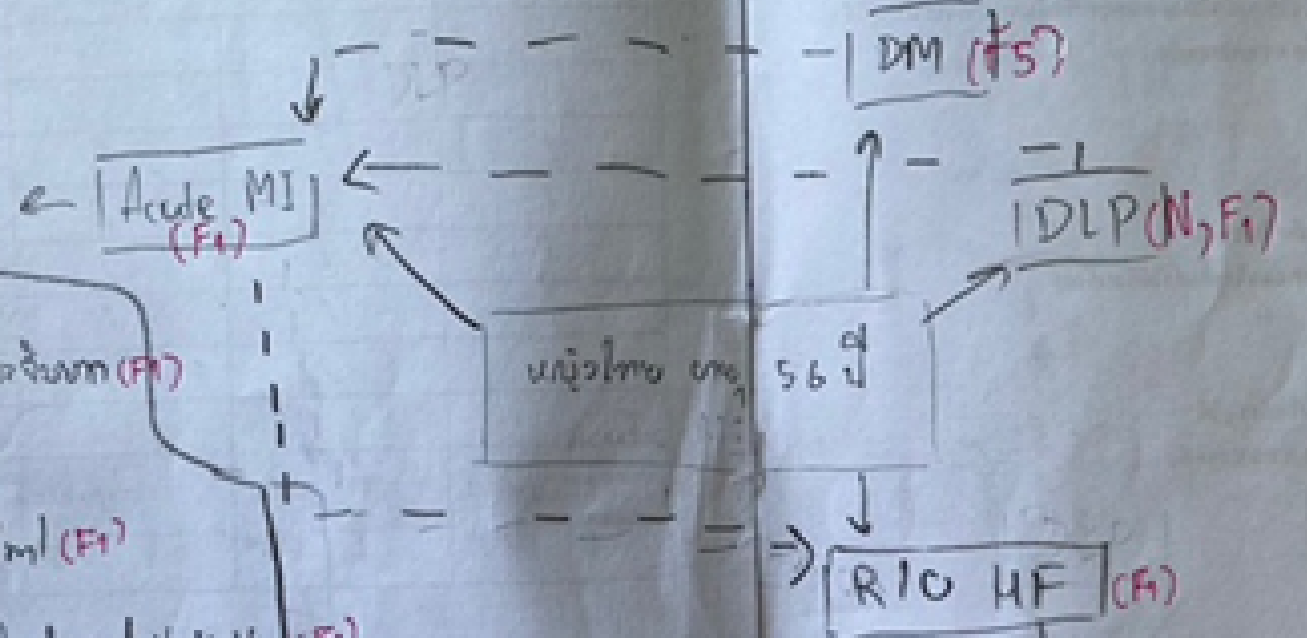 DM (F5)
DLP
Acute MI
(F1)
DLP (N, F1)
หญิงไทย อายุ 56 ปี
(F1)
ml (F1)
R/O HF (F1)